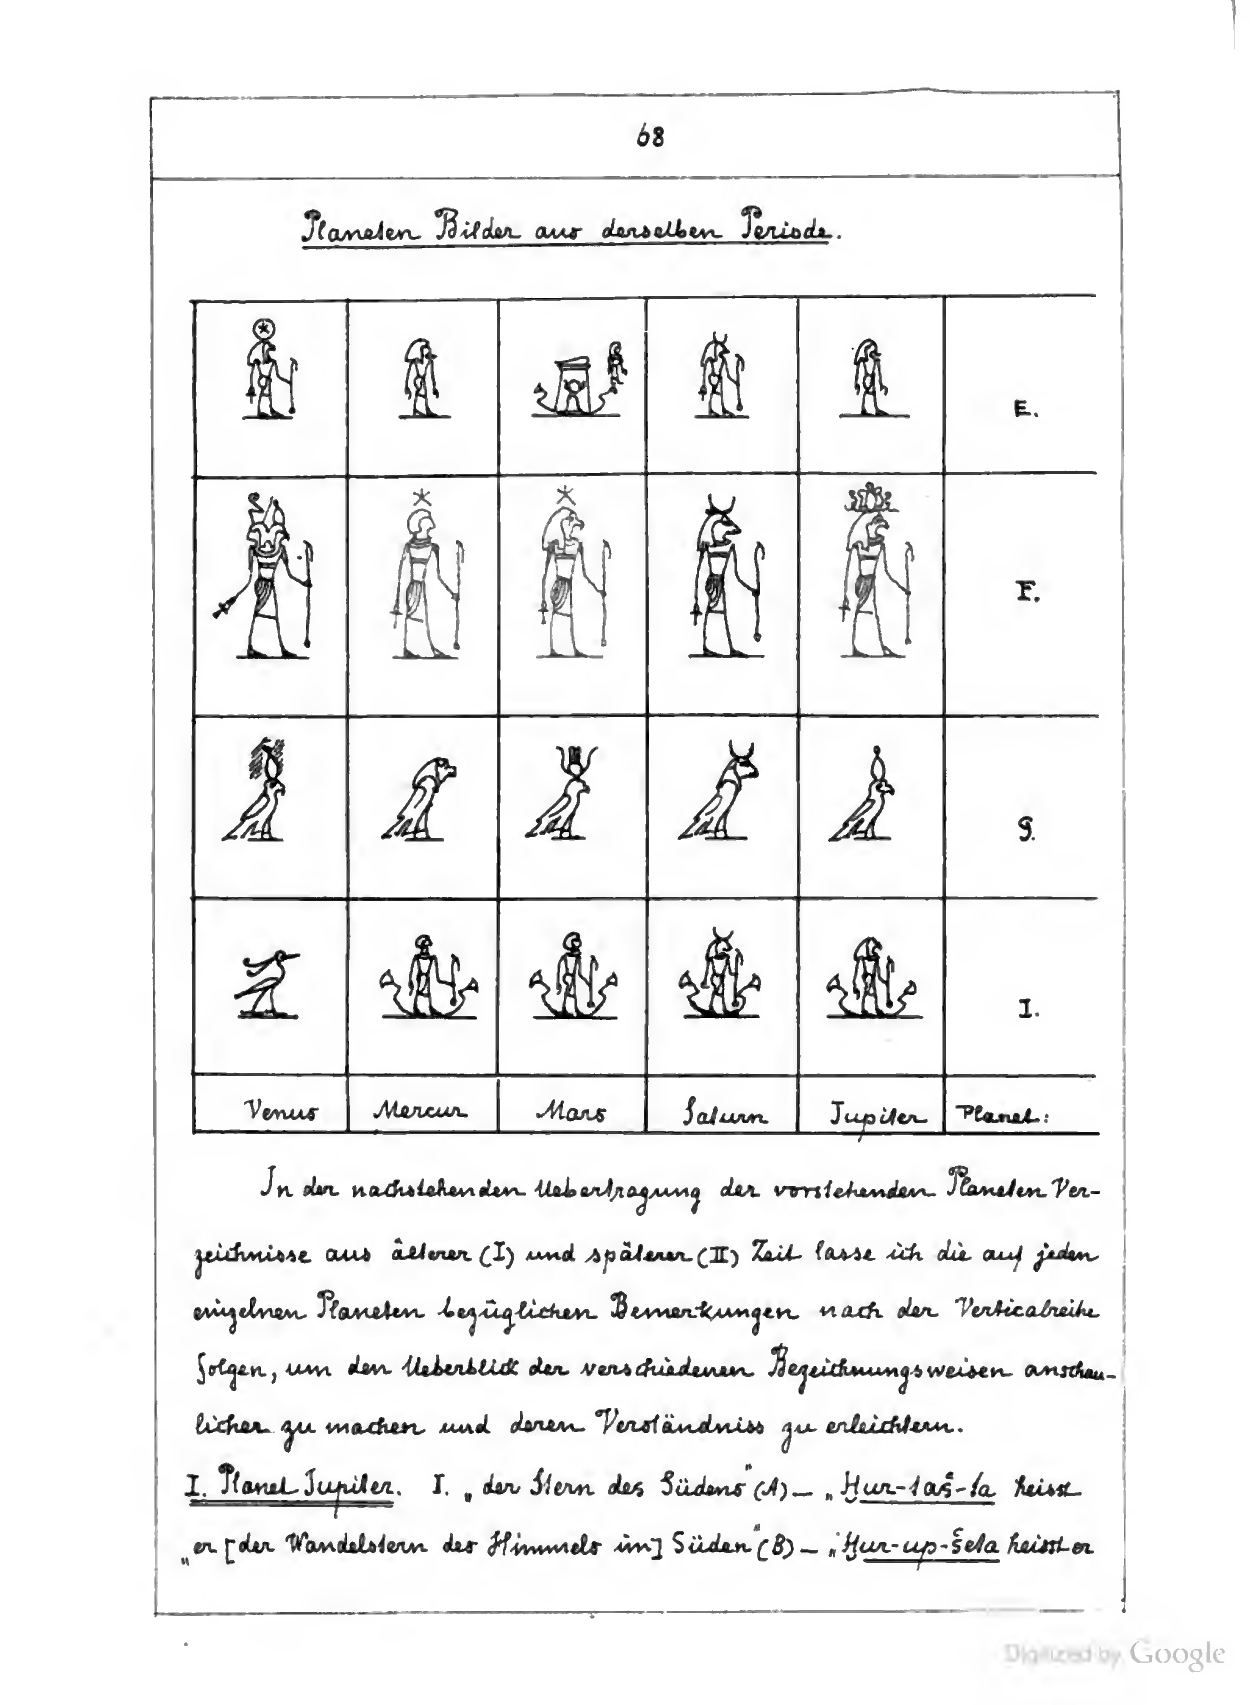 68
Planeten Bilder aus derselben Periode.
E.
F.
G.
I.
Venus Mercur Mars Saturn Jupiter Planet:
In der nachstehenden Uebertragung der vorstehenden Planeten Ver-
zeichnisse aus älterer (I) und späterer (II) Zeit lasse ich die auf jeden
einzelnen Planeten bezüglichen Bemerkungen nach der Verticalreihe
folgen, um den Ueberblick der verschiedenen Bezeichnungsweisen anschau-
licher zu machen und deren Verständniss zu erleichtern.
I. Planet Jupiter. I. „der Stern des Südens" (A) – „Ḥur-taš-ta heisst
„er [der Wandelstern des Himmels im] Süden" (B) – „Ḥur-up-šeta heisst er
Digitized by Google